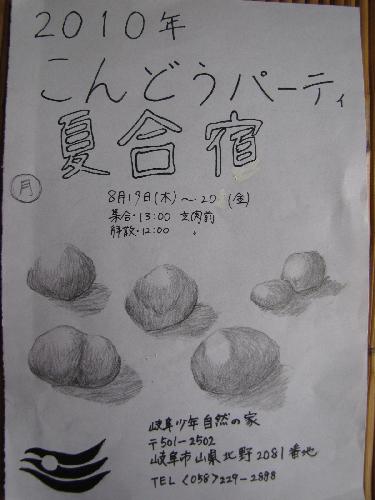 2010年
こんどうパーティ
夏合宿
月
8月19日(木)〜20(金)
集合・13:00 玄関前
解散・12:00
岐阜少年自然の家
〒501-2502
岐阜市山県北野2081番地
TEL<058>229-2888